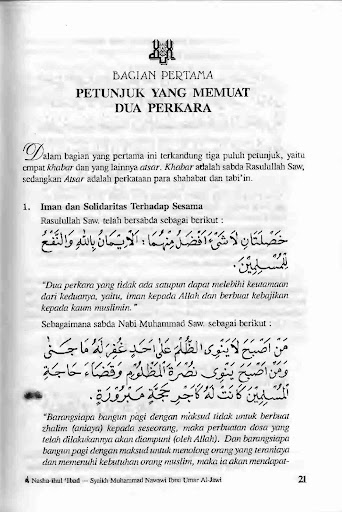 BAGIAN PERTAMA
PETUNJUK YANG MEMUAT
DUA PERKARA
Dalam bagian yang pertama ini terkandung tiga puluh petunjuk, yaitu
empat khabar dan yang lainnya atsar. Khabar adalah sabda Rasulullah Saw,
sedangkan Atsar adalah perkataan para shahabat dan tabi'in.
1. Iman dan Solidaritas Terhadap Sesama
Rasulullah Saw. telah bersabda sebagai berikut :
خَصْلَتَانِ لَا شَيْءَ اَفْضَلُ مِنْهُمَا : اَلْاِيْمَانُ بِاللهِ وَالنَّفْعُ
لِلْمُسْلِمِيْنَ.
"Dua perkara yang tidak ada satupun dapat melebihi keutamaan
dari keduanya, yaitu, iman kepada Allah dan berbuat kebajikan
kepada kaum muslimin."
Sebagaimana sabda Nabi Muhammad Saw. sebagai berikut :
مَنْ اَصْبَحَ لَا يَنْوِى الظُّلْمَ عَلَى اَحَدٍ غُفِرَ لَهُ مَا جَنَى
وَمَنْ اَصْبَحَ يَنْوِى نُصْرَةَ الْمَظْلُوْمِ وَقَضَاءَ حَاجَةِ
الْمُسْلِمِيْنَ كَانَتْ لَهُ كَاَجْرِ حَجَّةٍ مَبْرُوْرَةٍ.
"Barangsiapa bangun pagi dengan maksud tidak untuk berbuat
zhalim (aniaya) kepada seseorang, maka perbuatan dosa yang
telah dilakukannya akan diampuni (oleh Allah). Dan barangsiapa
bangun pagi dengan maksud untuk menolong orang yang teraniaya
dan memenuhi kebutuhan orang muslim, maka ia akan mendapat-
Nasha-ihul 'Ibad — Syaikh Muhammad Nawawi Ibnu Umar Al-Jawi 21